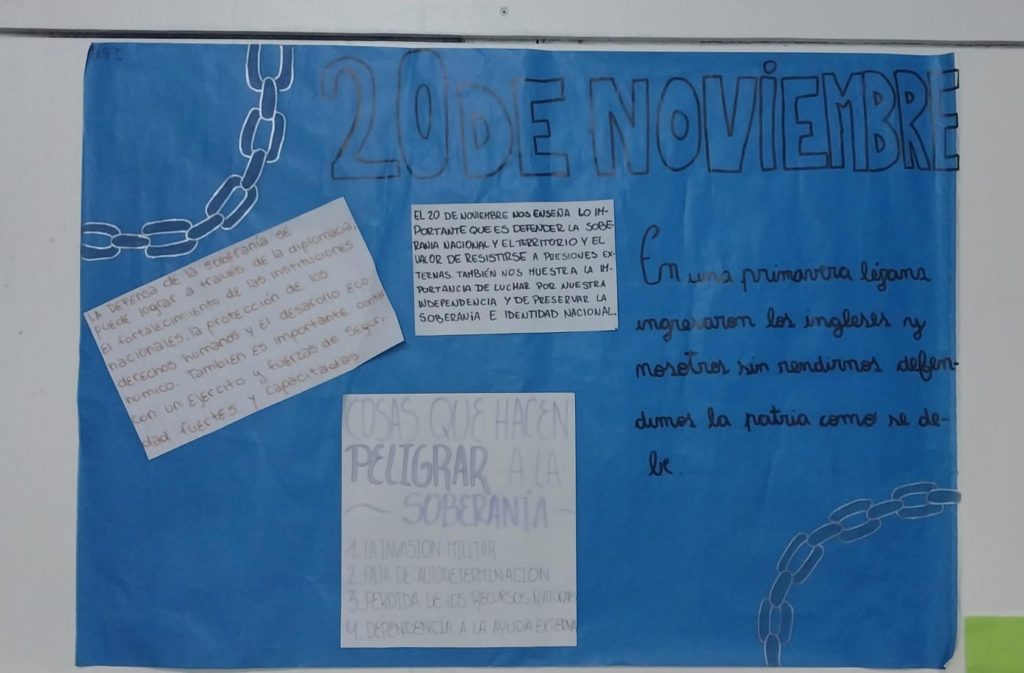 20 DE NOVIEMBRE
LA DEFENSA DE LA SOBERANÍA SE
puede lograr a través de la diplomacia,
el fortalecimiento de las instituciones
nacionales, la protección de los
derechos humanos y el desarollo eco
nomico. También es importante contar
con un Ejercito y fuerzas de seguri-
dad fuertes y capacitadas
EL 20 DE NOVIEMBRE NOS ENSEÑA LO IM-
PORTANTE QUE ES DEFENDER LA SOBE-
RANIA NACIONAL Y EL TERRITORIO Y EL
VALOR DE RESISTIRSE A PRESIONES EX-
TERNAS. TAMBIÉN NOS MUESTRA LA IM-
PORTANCIA DE LUCHAR POR NUESTRA
INDEPENDENCIA Y DE PRESERVAR LA
SOBERANÍA E IDENTIDAD NACIONAL.
En una primavera lejana
ingresaron los ingleses y
nosotros sin rendirnos defen-
dimos la patria como se de-
be.
COSAS QUE HACEN
PELIGRAR A LA
SOBERANÍA
1. LA INVASION MILITAR
2. FALTA DE AUTODETERMINACION
3. PERDIDA DE LOS RECURSOS NATURALES
4. DEPENDENCIA A LA AYUDA EXTERNA